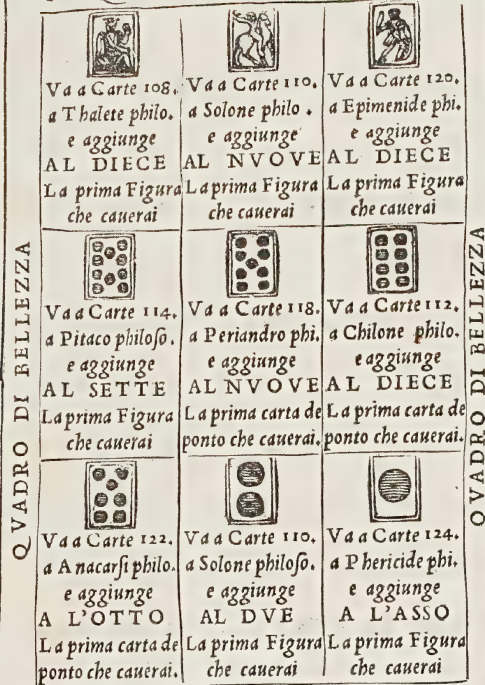 QVADRO DI BELLEZZA
Va a Carte 108.
a Thalete philo.
e aggiunge
AL DIECE
La prima Figura
che cauerai
Va a Carte 110.
a Solone philo .
e aggiunge
AL NVOVE
La prima Figura
che cauerai
Va a Carte 120.
a Epimenide phi.
e aggiunge
AL DIECE
La prima Figura
che cauerai
Va a Carte 114.
a Pitaco philoſo.
e aggiunge
AL SETTE
La prima Figura
che cauerai
Va a Carte 118.
a Periandro phi.
e aggiunge
AL NVOVE
La prima carta de
ponto che cauerai.
Va a Carte 112.
a Chilone philo.
e aggiunge
AL DIECE
La prima carta de
ponto che cauerai.
Va a Carte 122.
a Anacarſi philo.
e aggiunge
A L'OTTO
La prima carta de
ponto che cauerai.
Va a Carte 110.
a Solone philoſo.
e aggiunge
AL DVE
La prima Figura
che cauerai
Va a Carte 124.
a Phericide phi.
e aggiunge
A L'ASSO
La prima Figura
che cauerai
QVADRO DI BELLEZZA